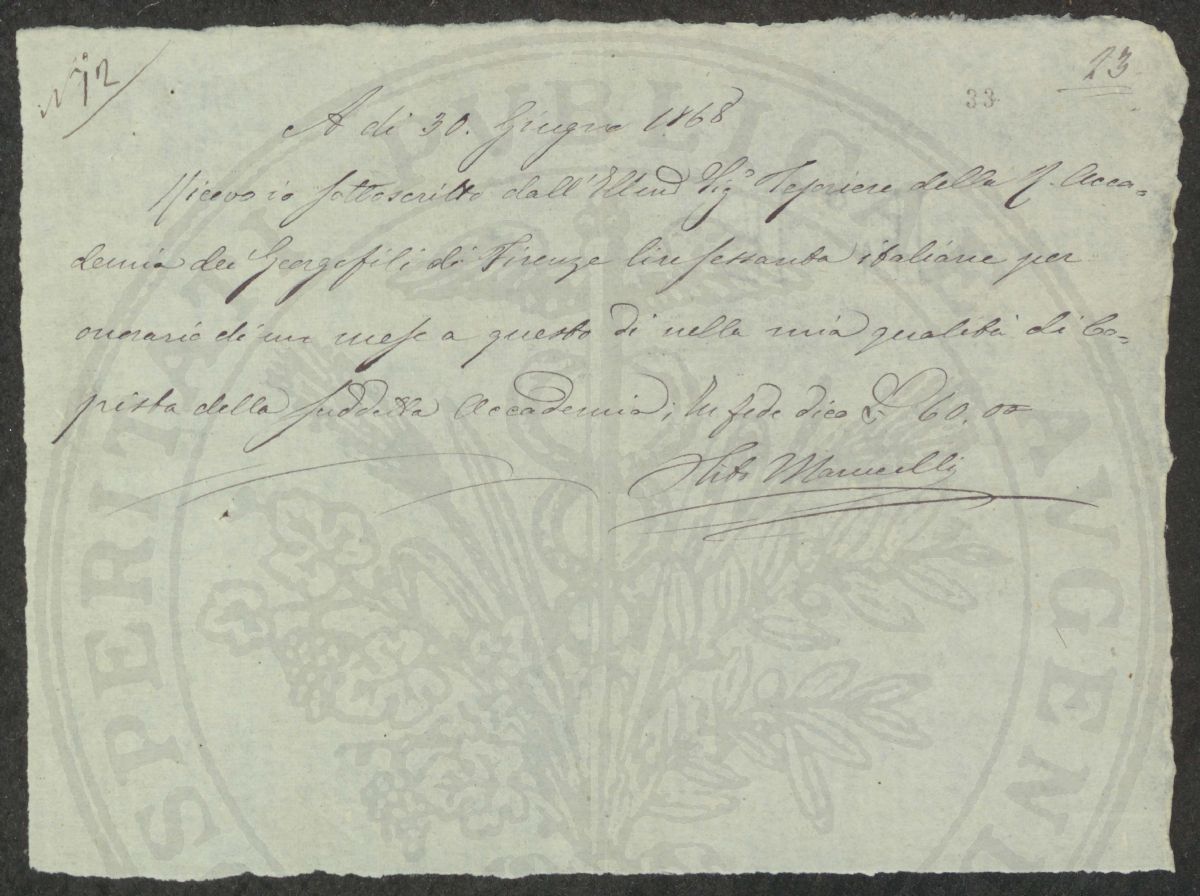 N° 12
23
33
A dì 30. Giugno 1868
Ricevo io sottoscritto dall' Sig.e Tesoriere della R. Acca=
demia dei Georgofili di Firenze lire sessanta italiane per
onorario di un mese a questo dì nella mia qualità di Co=
pista della suddetta Accademia; In fede dico £ 60.00
Tito Marucelli
PROSPERITATI PUBLICAE AUGENDAE